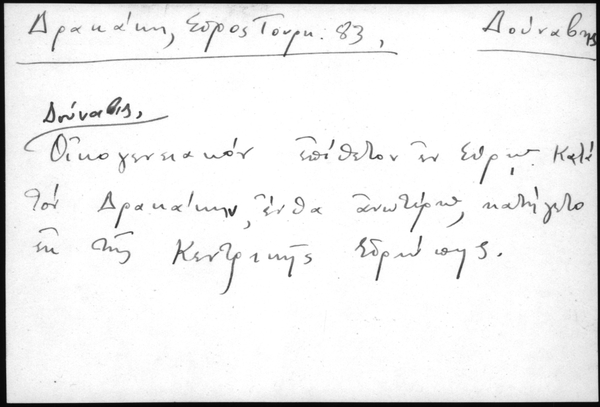 Δρακάκη, Σῦρος Τουρκ. 83, Δούναβης
Δούναβις,
Οἰκογενειακόν ἐπίθετον ἐν Σύρῳ. Κατά
τόν Δρακάκην, ἔνθα ἀνωτέρω, κατήγετο
ἐκ τῆς Κεντρικῆς Εὐρώπης.